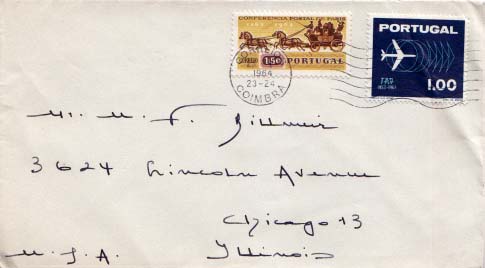 CONFERENCIA POSTAL DE PARIS
1863 1963
CORREIO 1$50 PORTUGAL
PORTUGAL
TAP
1953-1963
1.00
1964
23-24
COIMBRA
Mr. M. F. Billmeir
3624 Lincoln Avenue
Chicago 13
U.S.A. Illinois